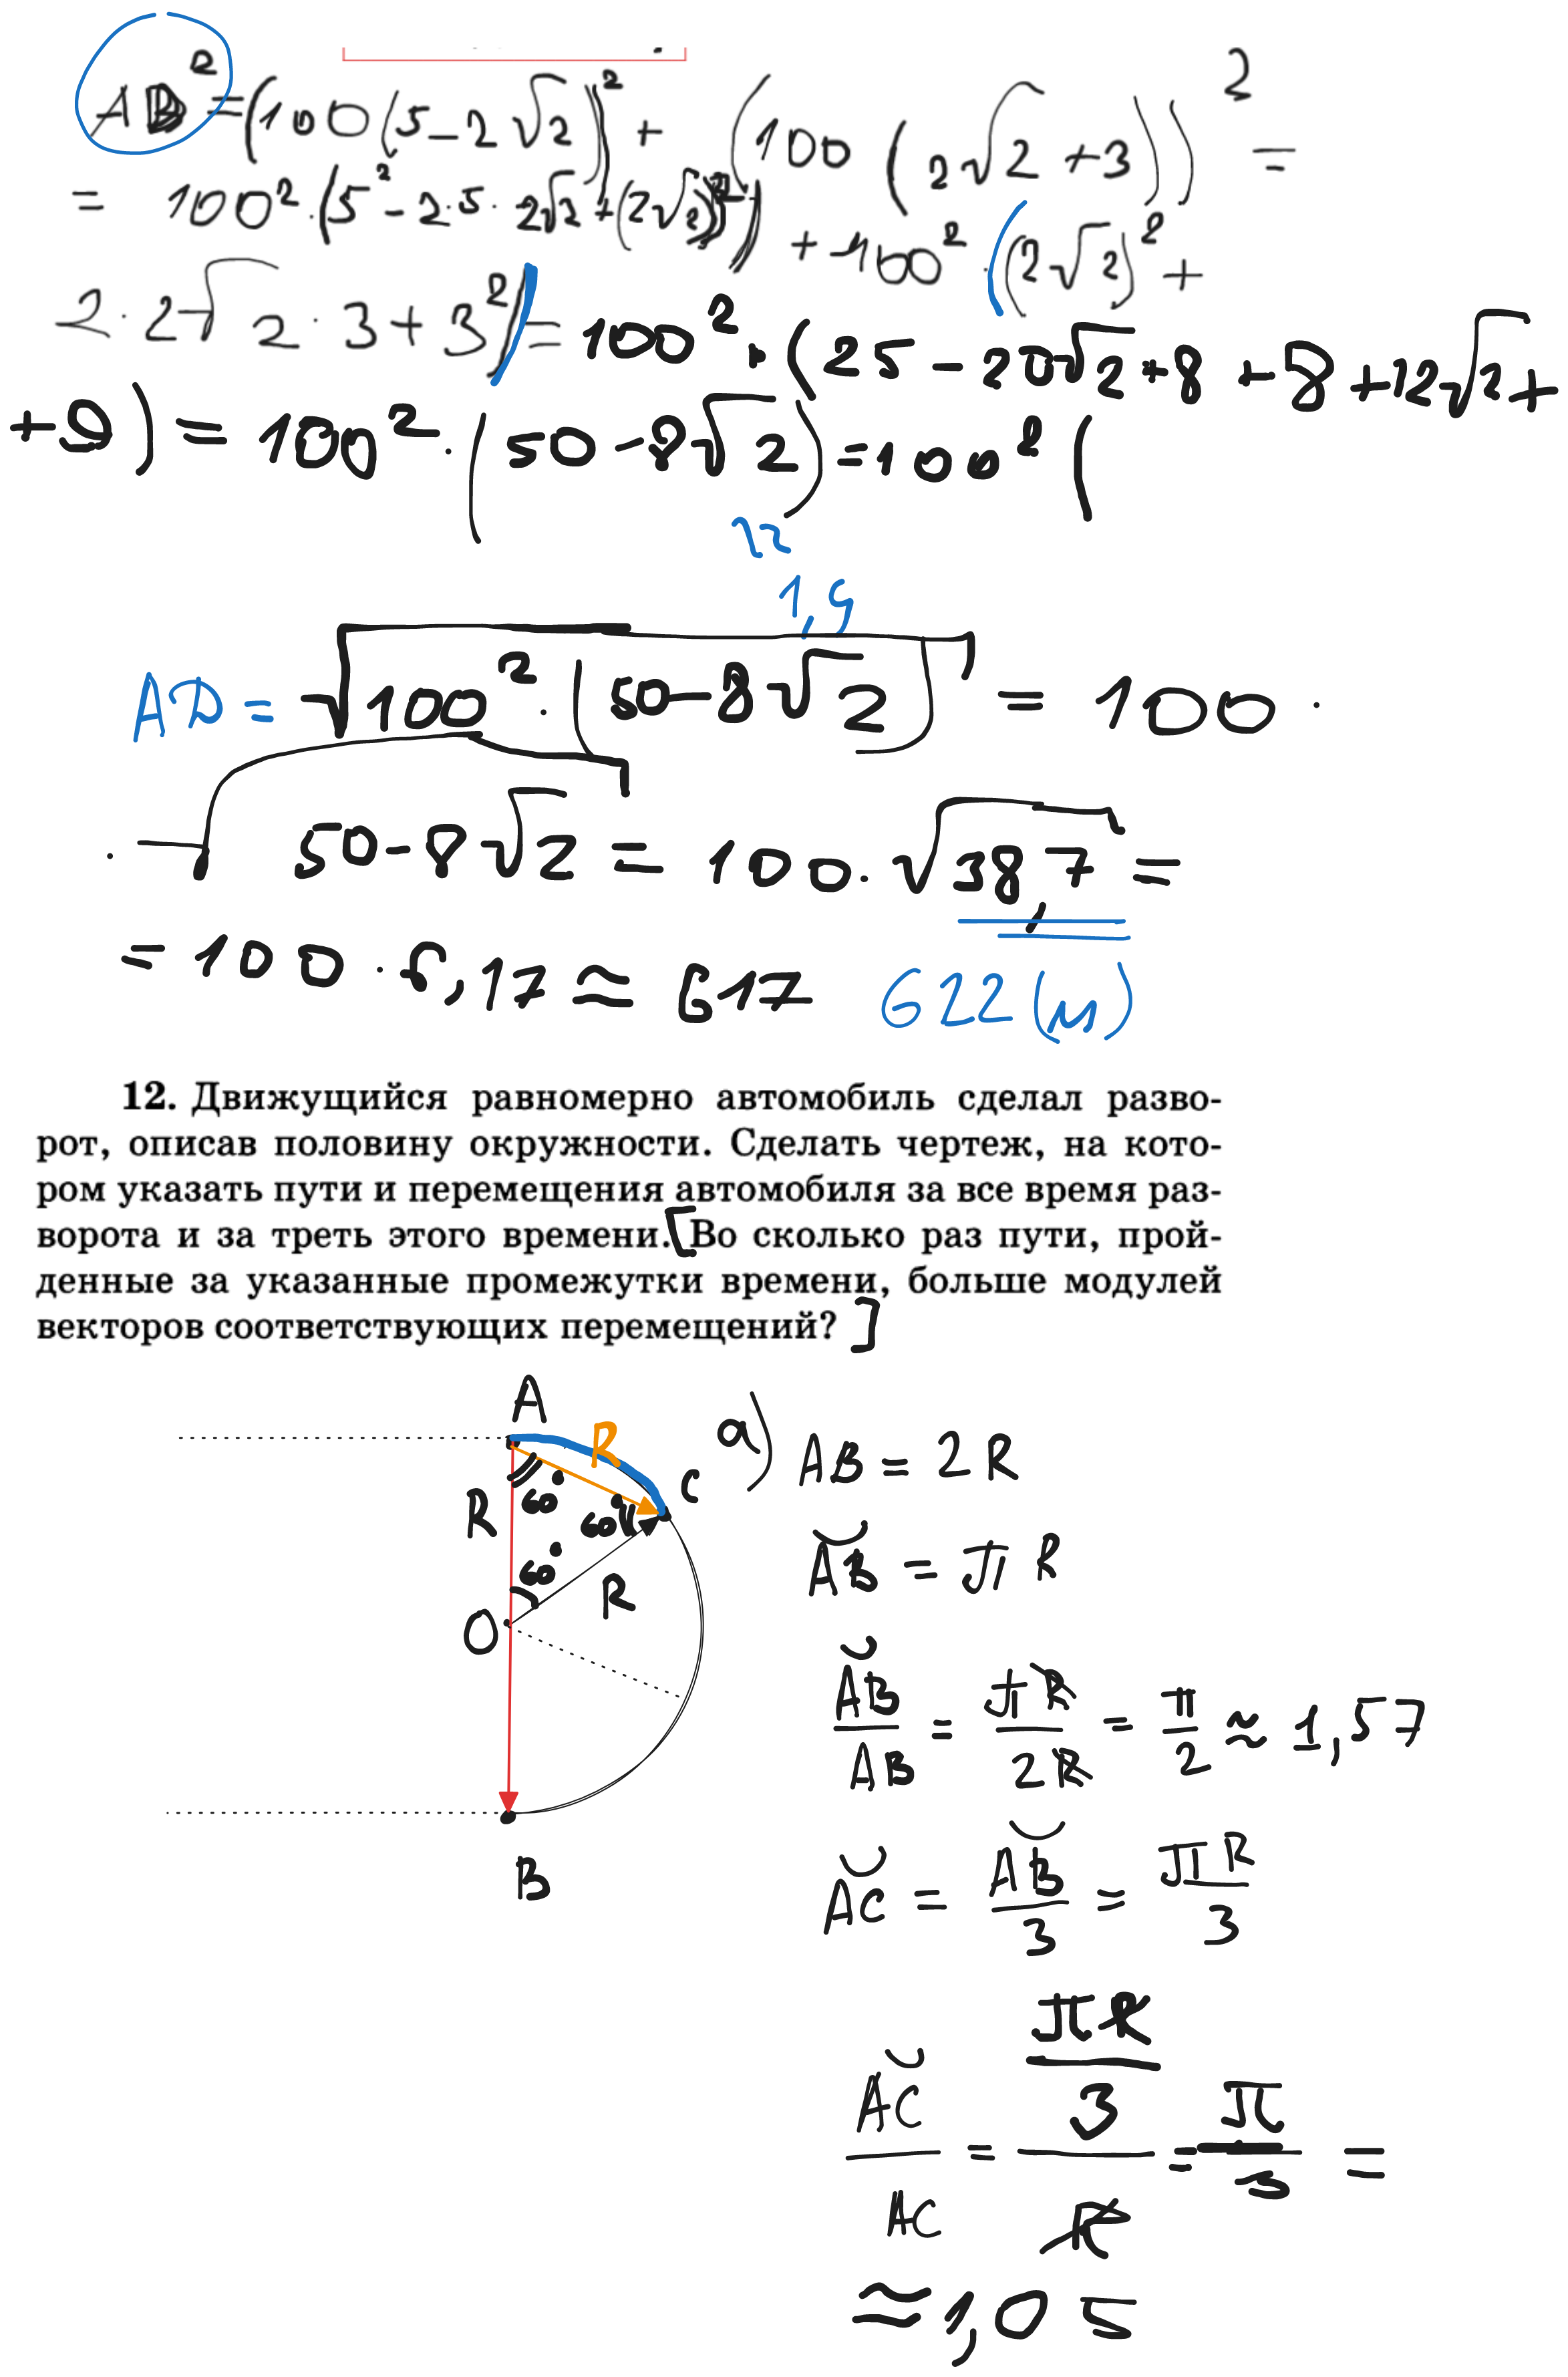 AD² = (100(5 - 2√2))² + (100(2√2 + 3))² =
= 100² · (5² - 2·5·2√2 + (2√2)²) + 100² · ((2√2)² +
2·2√2·3 + 3²) = 100² · (25 - 20√2 + 8 + 8 + 12√2 +
+ 9) = 100² · (50 - 8√2) = 100² (
≈
1,4
AD = √(100² · (50 - 8√2)) = 100 ·
· √(50 - 8√2) = 100 · √38,7 =
= 100 · 6,17 ≈ 617 622 (м)
12. Движущийся равномерно автомобиль сделал разво-
рот, описав половину окружности. Сделать чертеж, на кото-
ром указать пути и перемещения автомобиля за все время раз-
ворота и за треть этого времени. [Во сколько раз пути, прой-
денные за указанные промежутки времени, больше модулей
векторов соответствующих перемещений?]
A
R
C
R
60°
60°
60°
R
O
B
а) AB = 2R
A͝B = πR
A͝B/AB = πR/2R = π/2 ≈ 1,57
A͝C = A͝B/3 = πR/3
A͝C/AC = (πR/3)/R = π/3 =
≈ 1,05